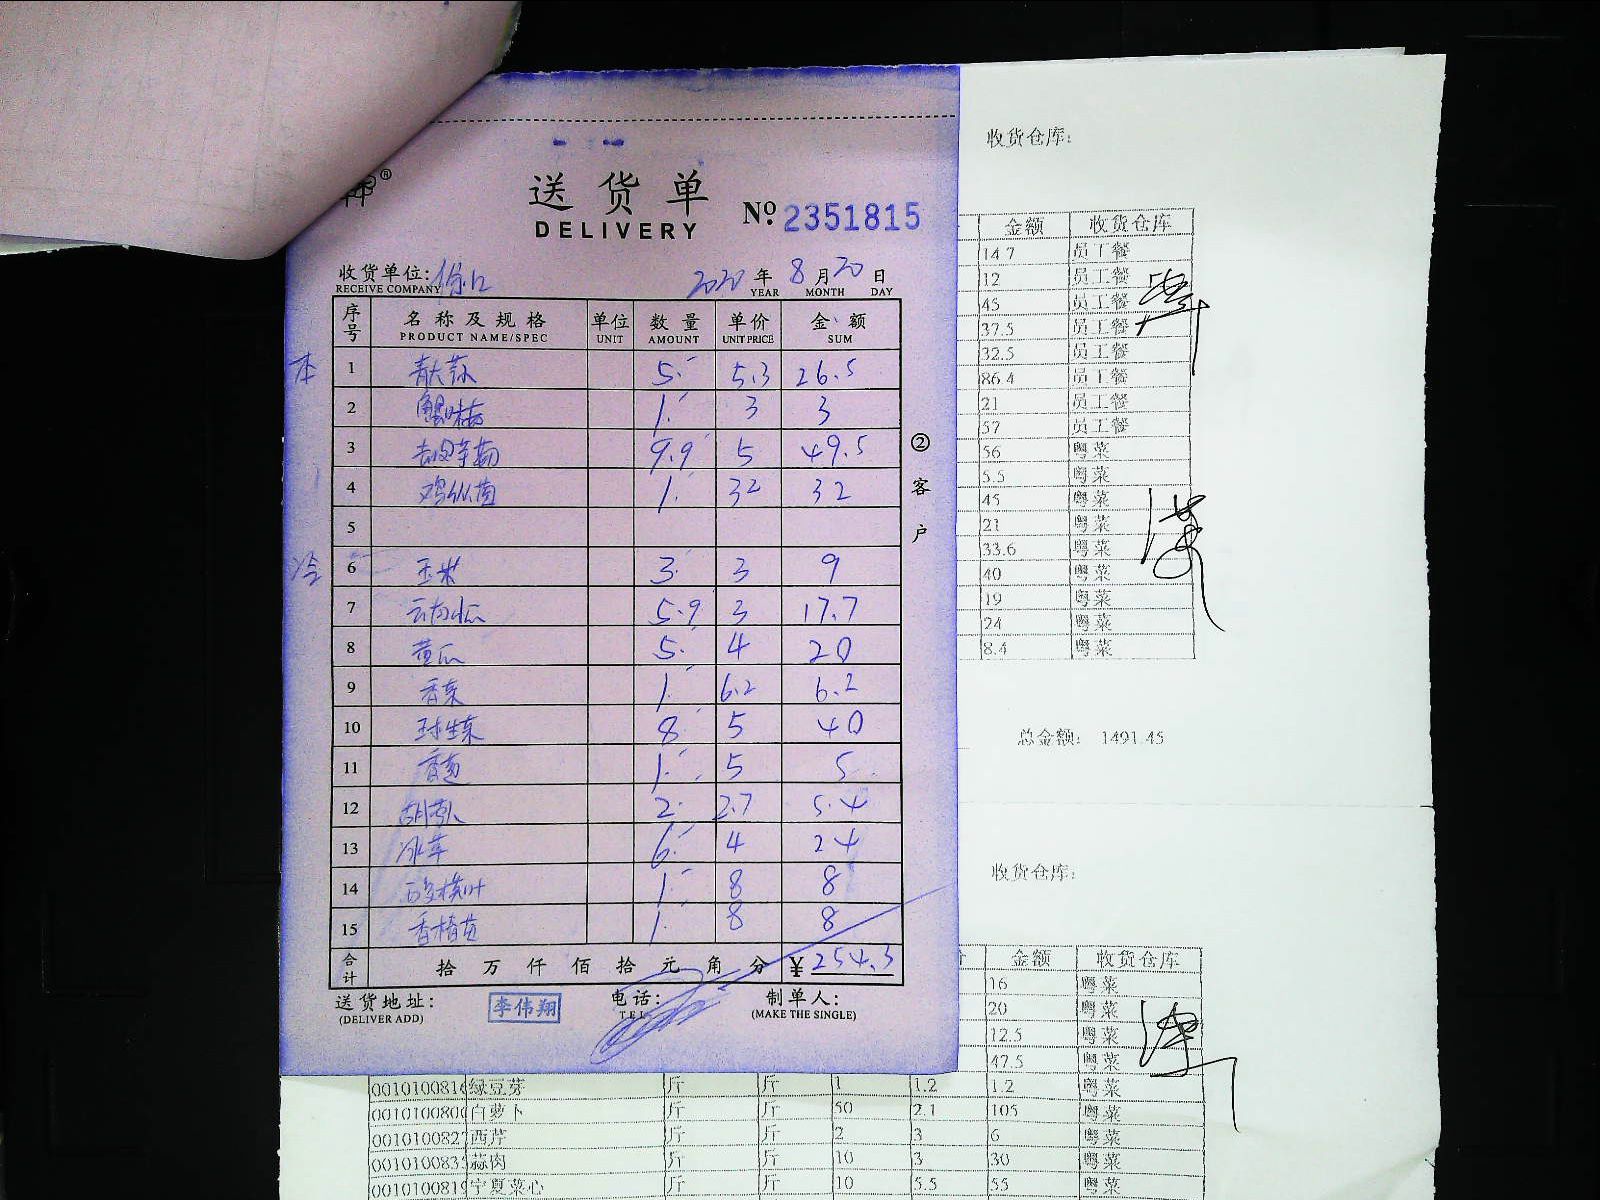 送货单
DELIVERY
№ 2351815
收货单位:
RECEIVE COMPANY
2020 年 8 月 20 日
YEAR MONTH DAY
序号 名称及规格 单位 数量 单价 金额
PRODUCT NAME/SPEC UNIT AMOUNT UNIT PRICE SUM
本 1 5 5.3 26.5
2 蟹味菇 1 3 3
3 9.9 5 49.5
4 鸡纵菌 1 32 32
5
冷 6 玉米 3 3 9
7 5.9 3 17.7
8 黄瓜 5 4 20
9 香菜 1 6.2 6.2
10 球生菜 8 5 40
11 香葱 1 5 5
12 2 2.7 5.4
13 冰草 6 4 24
14 1 8 8
15 香椿苗 1 8 8
合计 拾万仟佰拾元角分 ¥ 254.3
送货地址:
(DELIVER ADD)
李伟翔
电话:
TEL
制单人:
(MAKE THE SINGLE)
②客户
收货仓库:
金额 收货仓库
147 员工餐
12 员工餐
45 员工餐
37.5 员工餐
32.5 员工餐
86.4 员工餐
21 员工餐
57 员工餐
56 粤菜
5.5 粤菜
45 粤菜
21 粤菜
33.6 粤菜
40 粤菜
19 粤菜
24 粤菜
8.4 粤菜
总金额: 1491.45
收货仓库:
金额 收货仓库
16 粤菜
20 粤菜
12.5 粤菜
47.5 粤菜
绿豆芽 斤 斤 1 1.2 1.2 粤菜
白萝卜 斤 斤 50 2.1 105 粤菜
西芹 斤 斤 2 3 6 粤菜
蒜肉 斤 斤 10 3 30 粤菜
宁夏菜心 斤 斤 10 5.5 55 粤菜